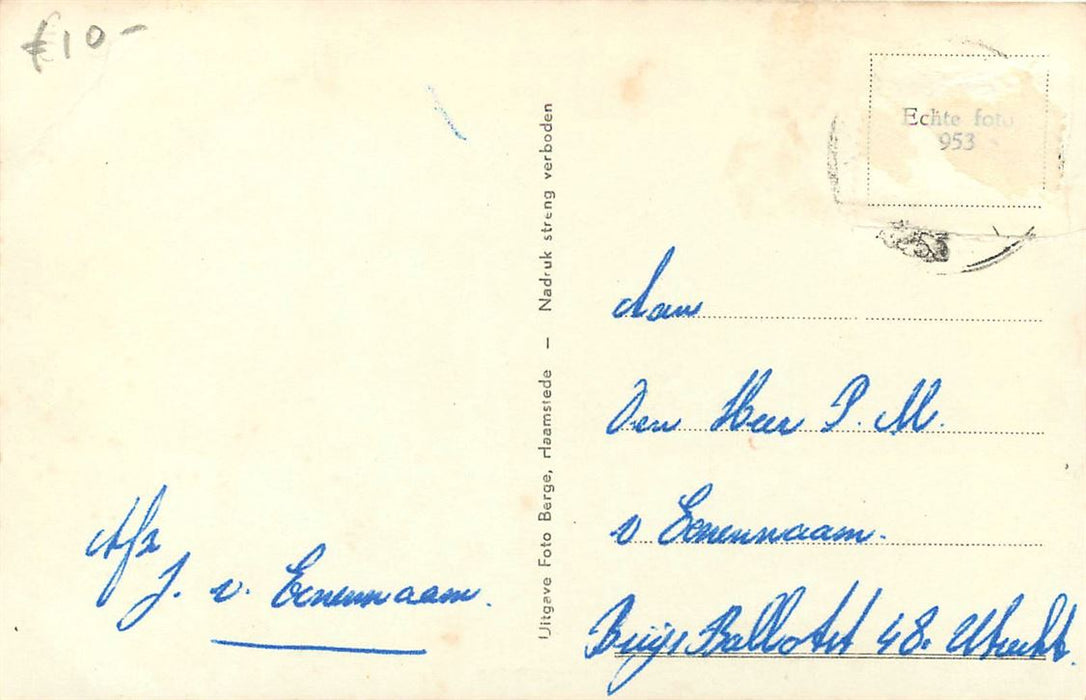 €10-
Echte foto
953
53
Uitgave Foto Berge, Haamstede — Nadruk streng verboden
Aan
Den Heer P. M.
v Eenennaam.
Buijs Ballotstr 48. Utrecht.
Afz
J. v. Eenennaam.